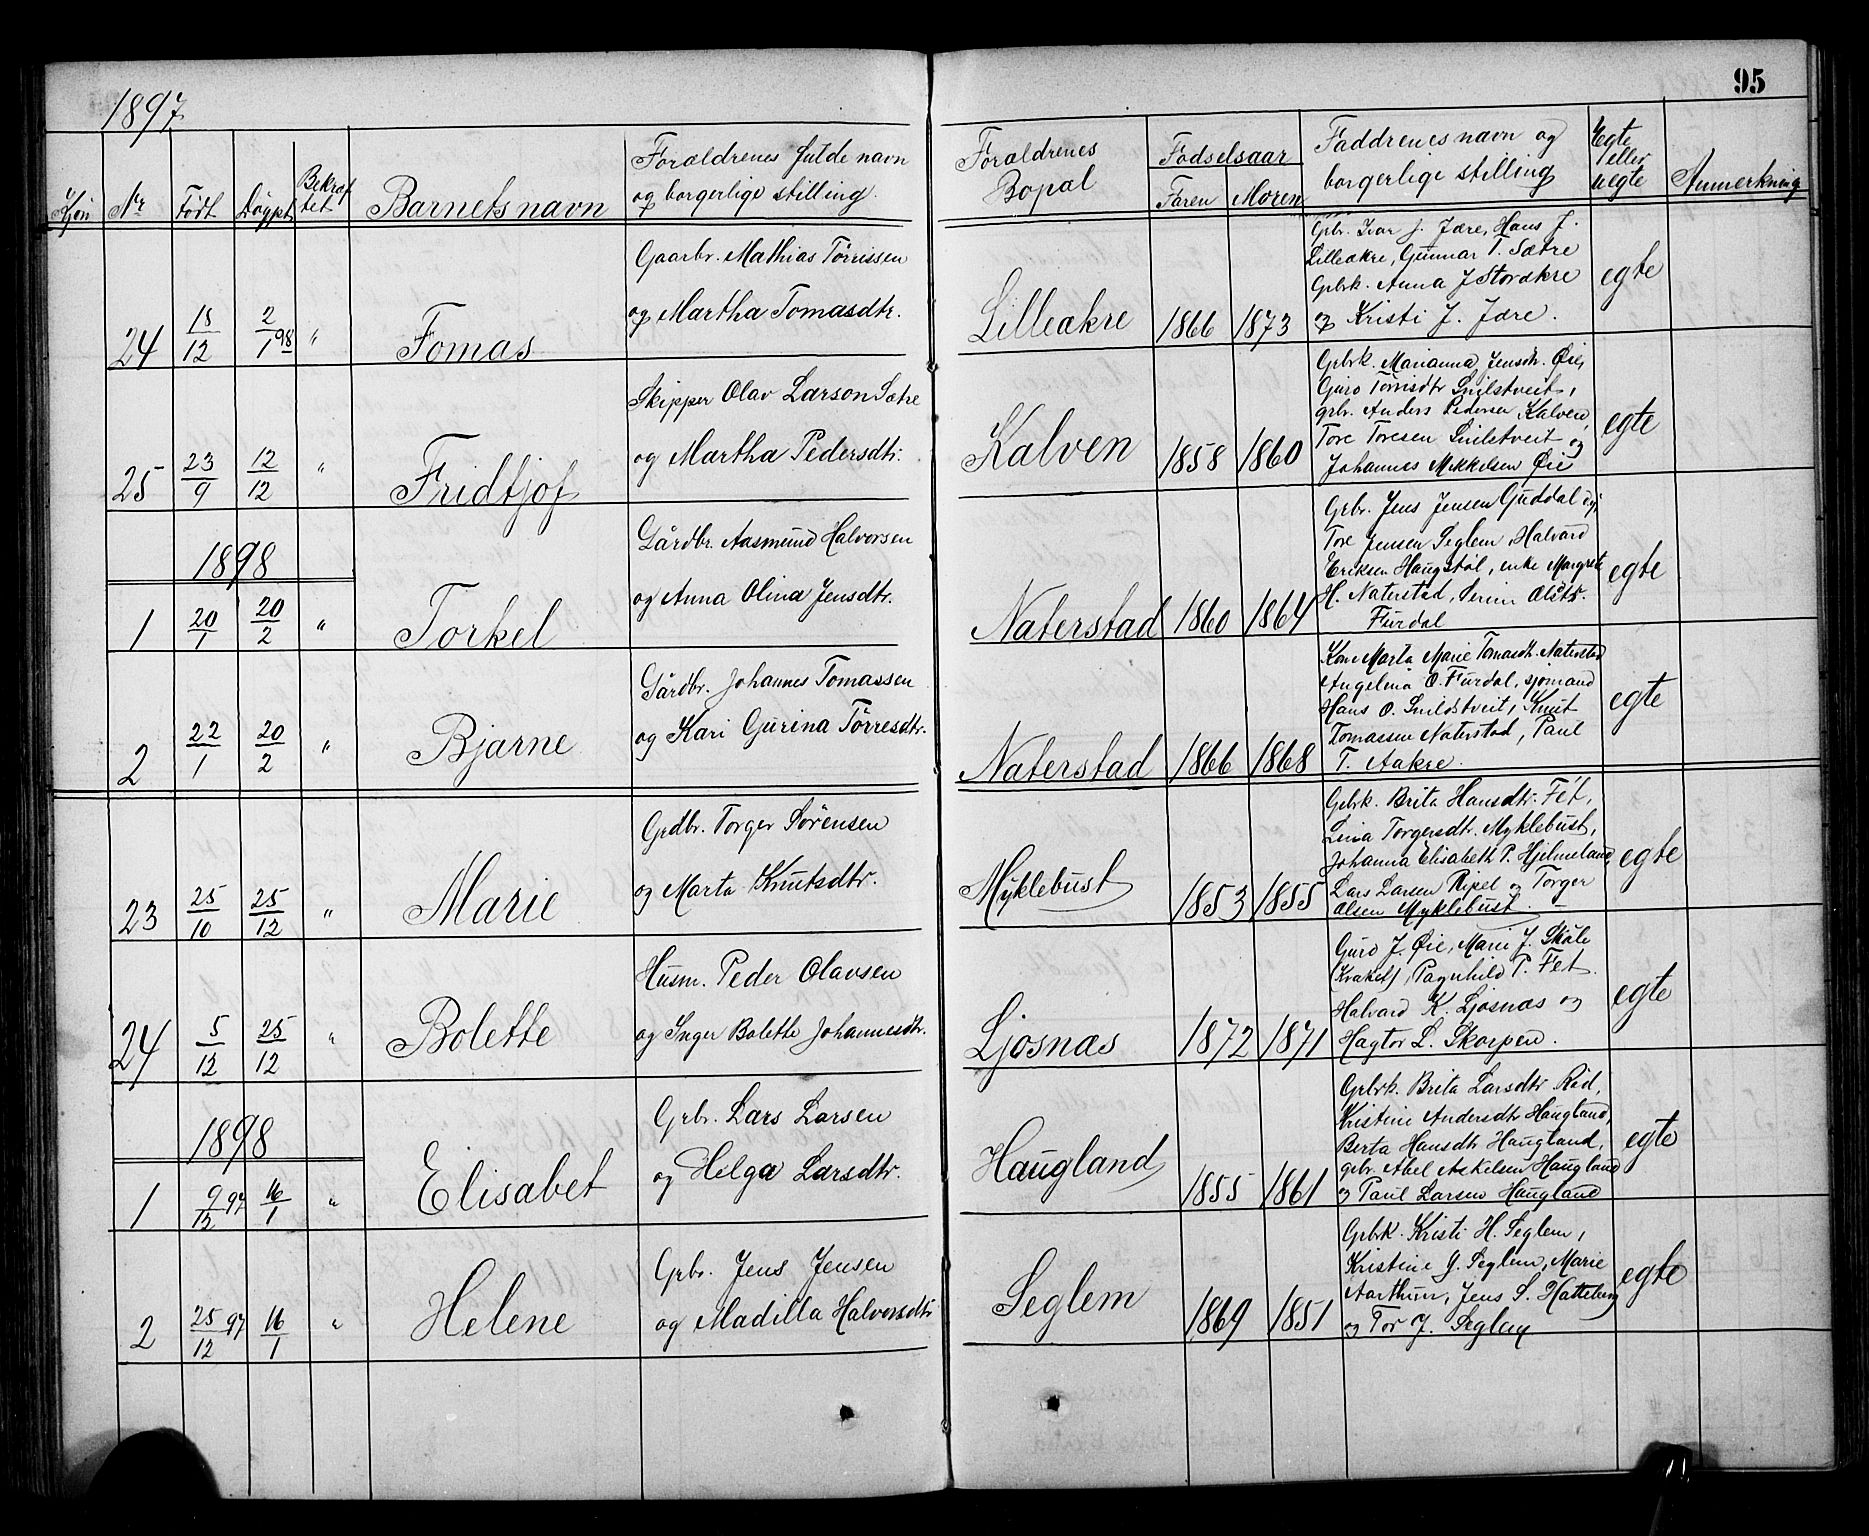 95
1897
Kjön Nr Födt Döypt Bekræftet Barnets navn Forældrenes fulde navn og borgerlige stilling.
Forældrenes Bopæl Födselsaar Faren Moren Faddrenes navn og borgerlige stilling Egte eller uegte Anmerkning
24 18/12 2/1 98 " Tomas
Gaarbr. Mathias Törrissen
og Martha Tomasdtr.
Lilleakre 1866 1873
Grbr. Ivar J. Jære, Hans J.
Lilleakre, Gunnar T. Sætre
Grbrk. Anna J Storakre
og Kristi J. Jære.
egte
25 23/9 12/12 " Fridtjof
Skipper Olav Larson Sætre
og Martha Pedersdtr.
Kalven 1858 1860
Grbrk. Marianna Jensdtr. Öie,
Guro Törrisdtr Snilstveit,
grbr. Anders Pedersen Kalven,
Tore Toresen Snilstveit og
Johannes Mikkelsen Öie
egte
1898
1 20/1 20/2 " Torkel
Gårdbr. Aasmund Halvorsen
og Anna Olina Jensdtr.
Naterstad 1860 1864
Grbr. Jens Jensen Guddal
Tore Jensen Seglem, Halvard
Eriksen Haugstöl, enke Margrete
H. Naterstad, Serine Olsdtr.
Furdal
egte
2 22/1 20/2 " Bjarne
Gårdbr. Johannes Tomassen
og Kari Gurina Törresdtr.
Naterstad 1866 1868
Kone Marta Marie Tomasdtr. Naterstad
Angelina O. Furdal, sjömand
Hans O. Snildstveit, Knut
Tomassen Naterstad, Paul
T. Aakre.
egte
23 25/10 25/12 " Marie
Grdbr. Torger Sörensen
og Marta Knutsdtr.
Myklebust 1853 1855
Grbrk. Brita Hansdtr. Fet,
Lina Torgersdtr. Myklebust,
Johanna Elisabeth P. Hjelmeland,
Lars Larsen Ripel og Torger
Olsen Myklebust.
egte
24 5/12 25/12 " Bolette
Husm. Peder Olavsen
og Inger Bolette Johannesdtr.
Ljosnas 1872 1871
Guro J. Öie, Marie J. Skåle
Ragnhild P. Fet
Halvard K. Ljosnas og
Hagtor L. Skorpen.
egte
1898
1 9/12 97 16/1 " Elisabet
Grbr. Lars Larsen
og Helga Larsdtr.
Haugland 1855 1861
Grbrk. Brita Larsdtr Röd,
Kristine Andersdtr Haugland,
Berta Hansdtr Haugland,
gbr. Abel Askelsen Haugland
og Paul Larsen Haugland
egte
2 25/12 97 16/1 " Helene
Grbr. Jens Jensen
og Madilla Halvorsdtr
Seglem 1869 1851
Grbrk. Kristi H. Seglem,
Kristine J. Seglem, Marie
Aarthun, Jens S. Hatteberg
og Tor J. Seglem
egte